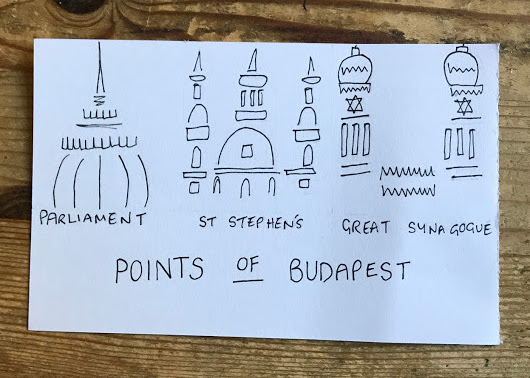 PARLIAMENT ST STEPHEN'S GREAT SYNAGOGUE
POINTS OF BUDAPEST